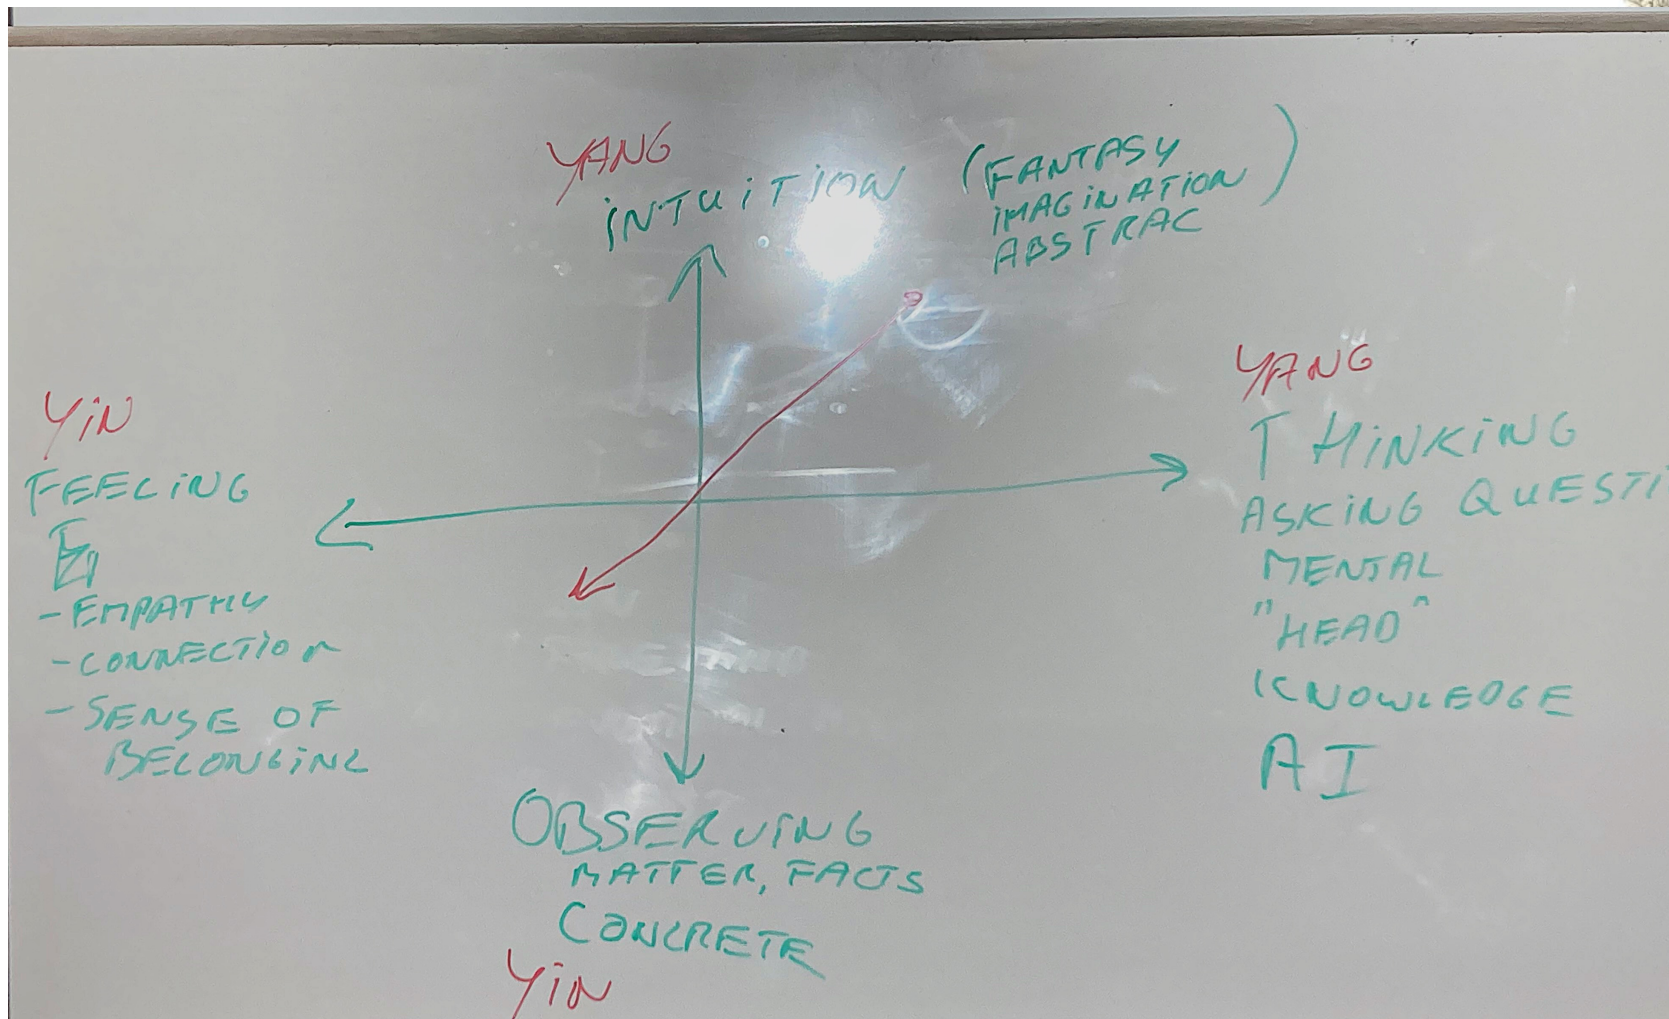 YANG
iNTUiTiON (FANTASY
iMAGiNATiON)
ABSTRAC
YiN
FEELiNG
- EMPATHY
- CONNECTiON
- SENSE OF
BELONGiNG
YANG
THiNKiNG
ASKiNG QUESTi
MENTAL
"HEAD"
KNOWLEDGE
AI
OBSERViNG
MATTER, FACTS
CONCRETE
YiN